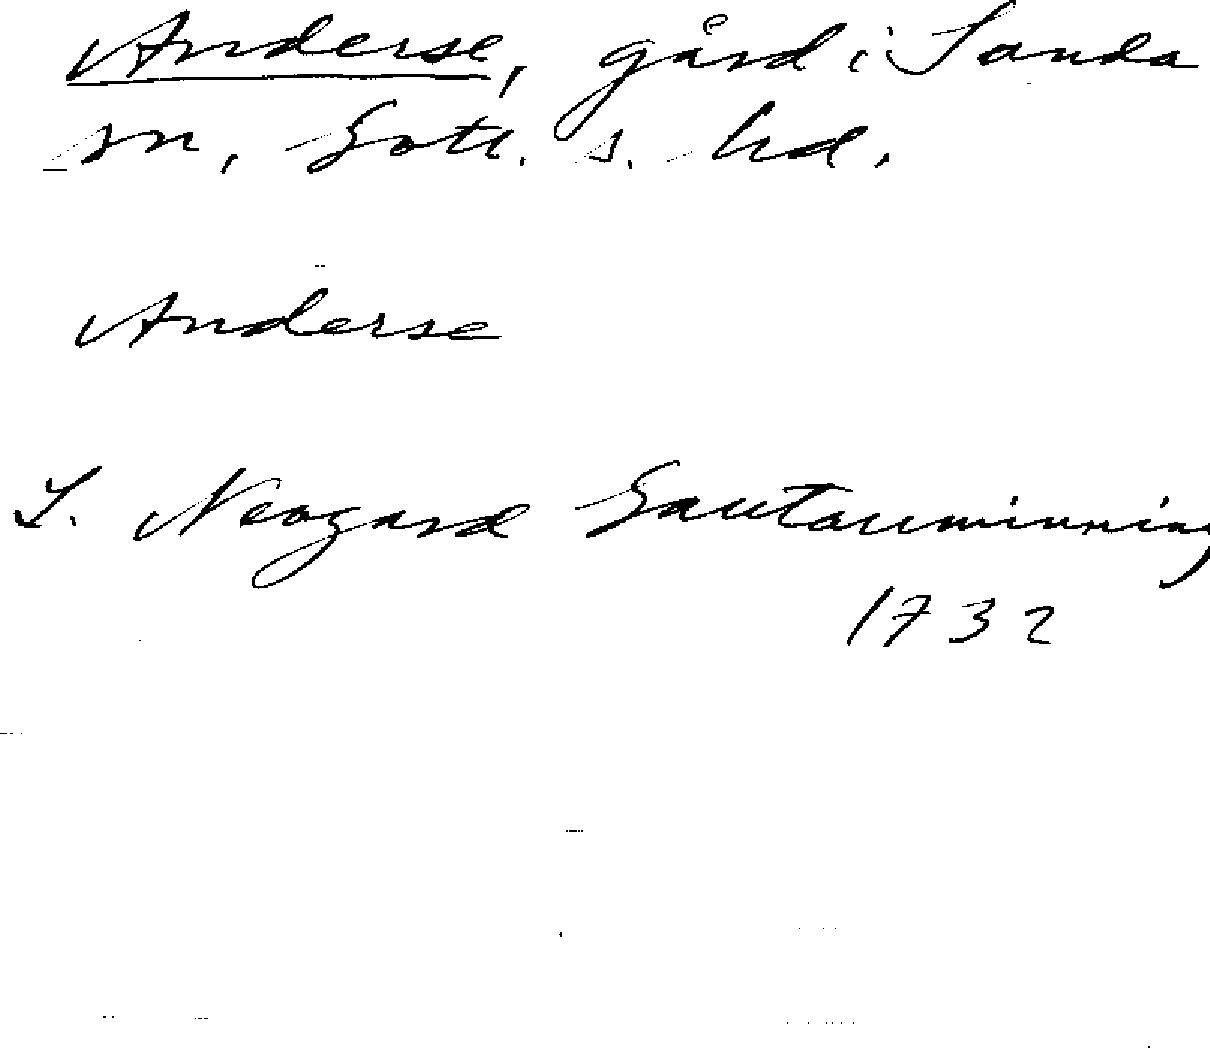 Anderse, gård i Sanda
sn, Gotl. s. hd.
Anderse
J. Neogard Gautauminning
1732